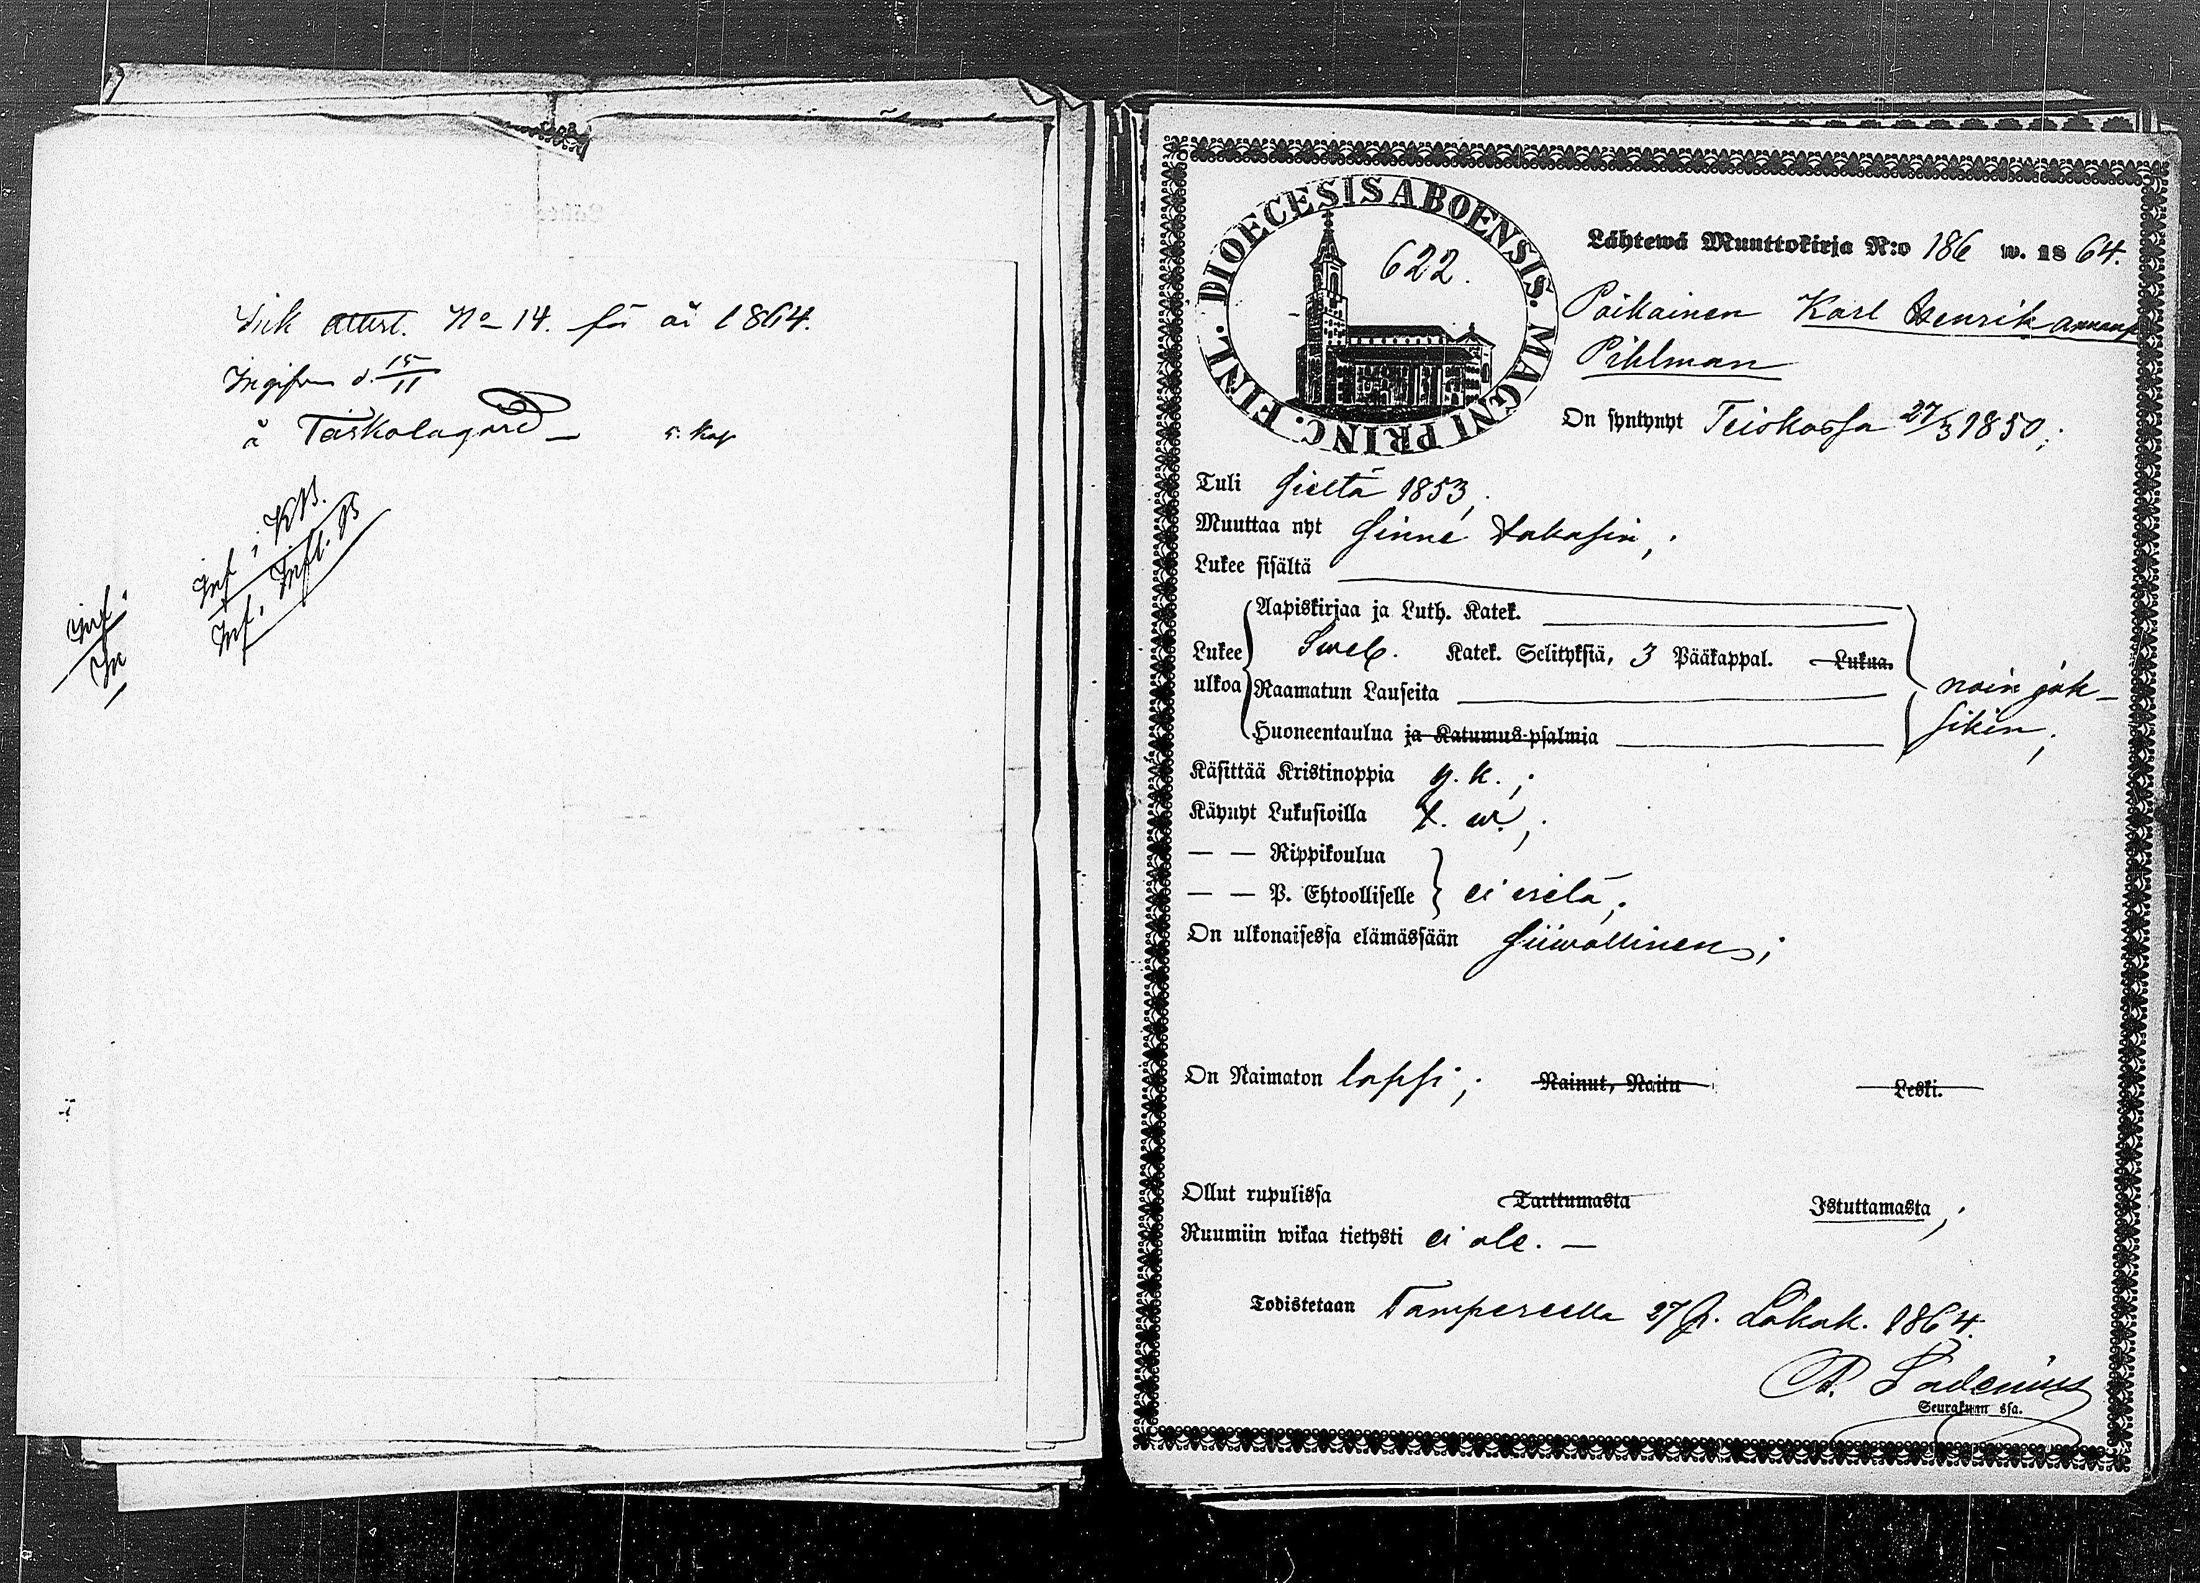 Ink attest. No 14. för år 1864.
Ingifven d. 15/11
å Teiskolagård —
Inf. i KB.
Inf. i Infl. B
Inf.
DIOECESIS ABOENSIS. MAGNI PRINC. FINL.
622.
Lähtewä Muuttokirja N:o 186 w. 1864.
Poikainen Karl Henrik
Pihlman
On syntynyt Teiskossa 27/3 1850;
Tuli sieltä 1853,
Muuttaa nyt sinne takasin;
Lukee sisältä
Aapiskirjaa ja Luth. Katek.
Lukee ulkoa
Sweb. Katek. Selityksiä, 3 Pääkappal. Lukua.
Raamatun Lauseita
Huoneentaulua ja Katumus-psalmia
noin jok-
sikin;
Käsittää Kristinoppia y. k.;
Käynyt Lukusioilla t. w.;
— — Rippikoulua
— — P. Ehtoolliselle ei vielä;
On ulkonaisessa elämässään siiwollinen;
On Naimaton lapsi; Nainut, Naitu Leski.
Ollut rupulissa Tarttumasta Istuttamasta;
Ruumiin wikaa tietysti ei ole. —
Todistetaan Tampereella 27 p. Lokak. 1864.
Seurakunn ssa.